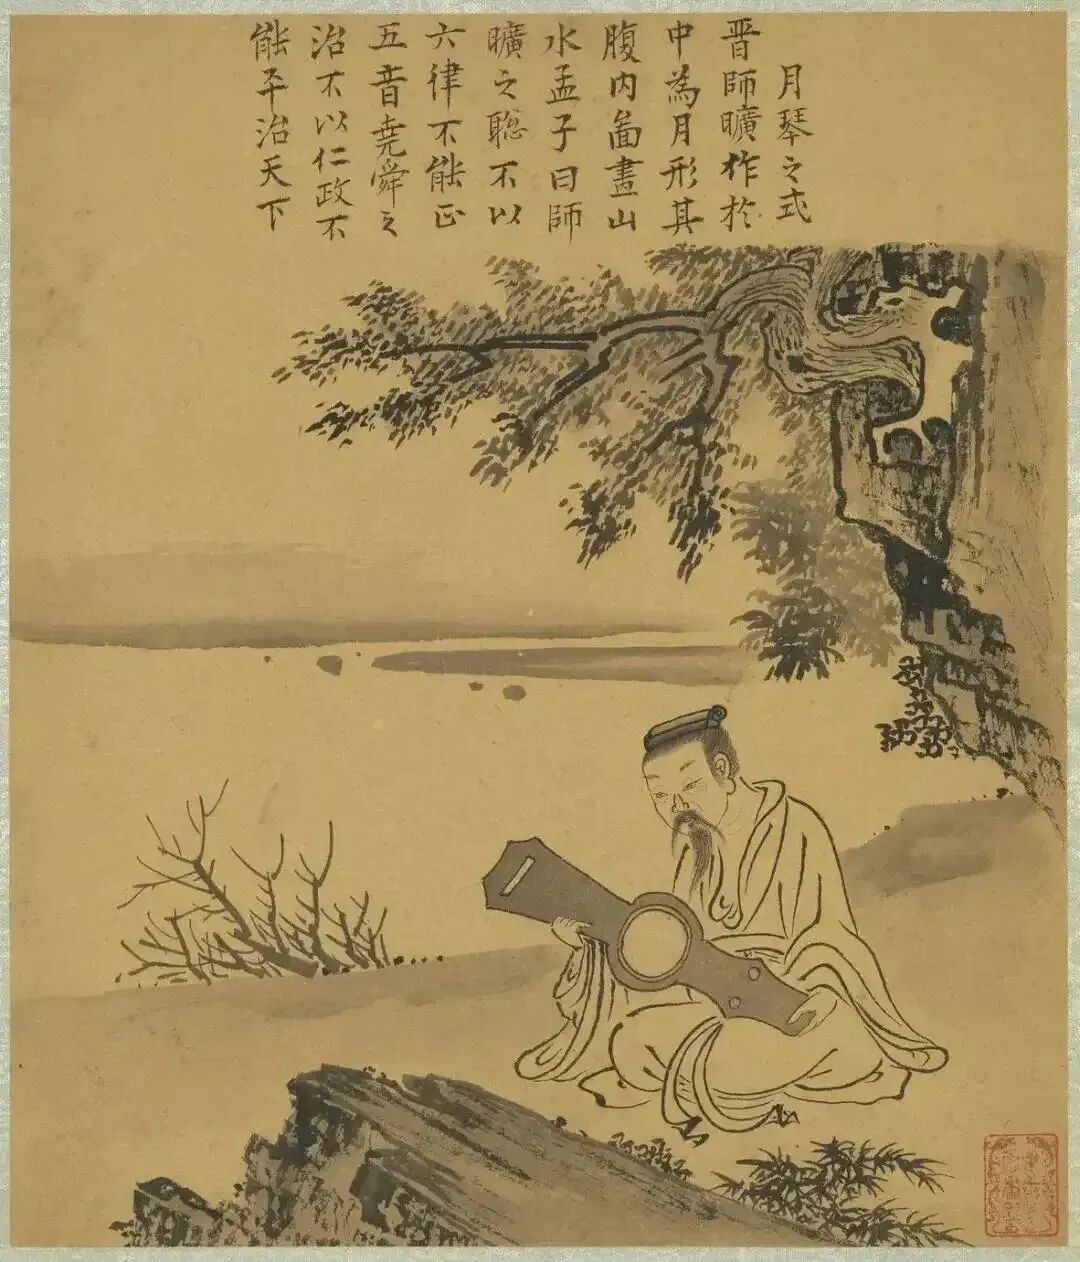 月琴之式
晋師曠作於
中為月形其
腹内畵山
水孟子曰師
曠之聡不以
六律不能正
五音堯舜之
治不以仁政不
能平治天下